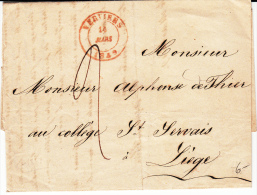 VERVIERS
14
MARS
Monsieur
Monsieur Alphonse de Thier
au collège St Servais
à
Liège